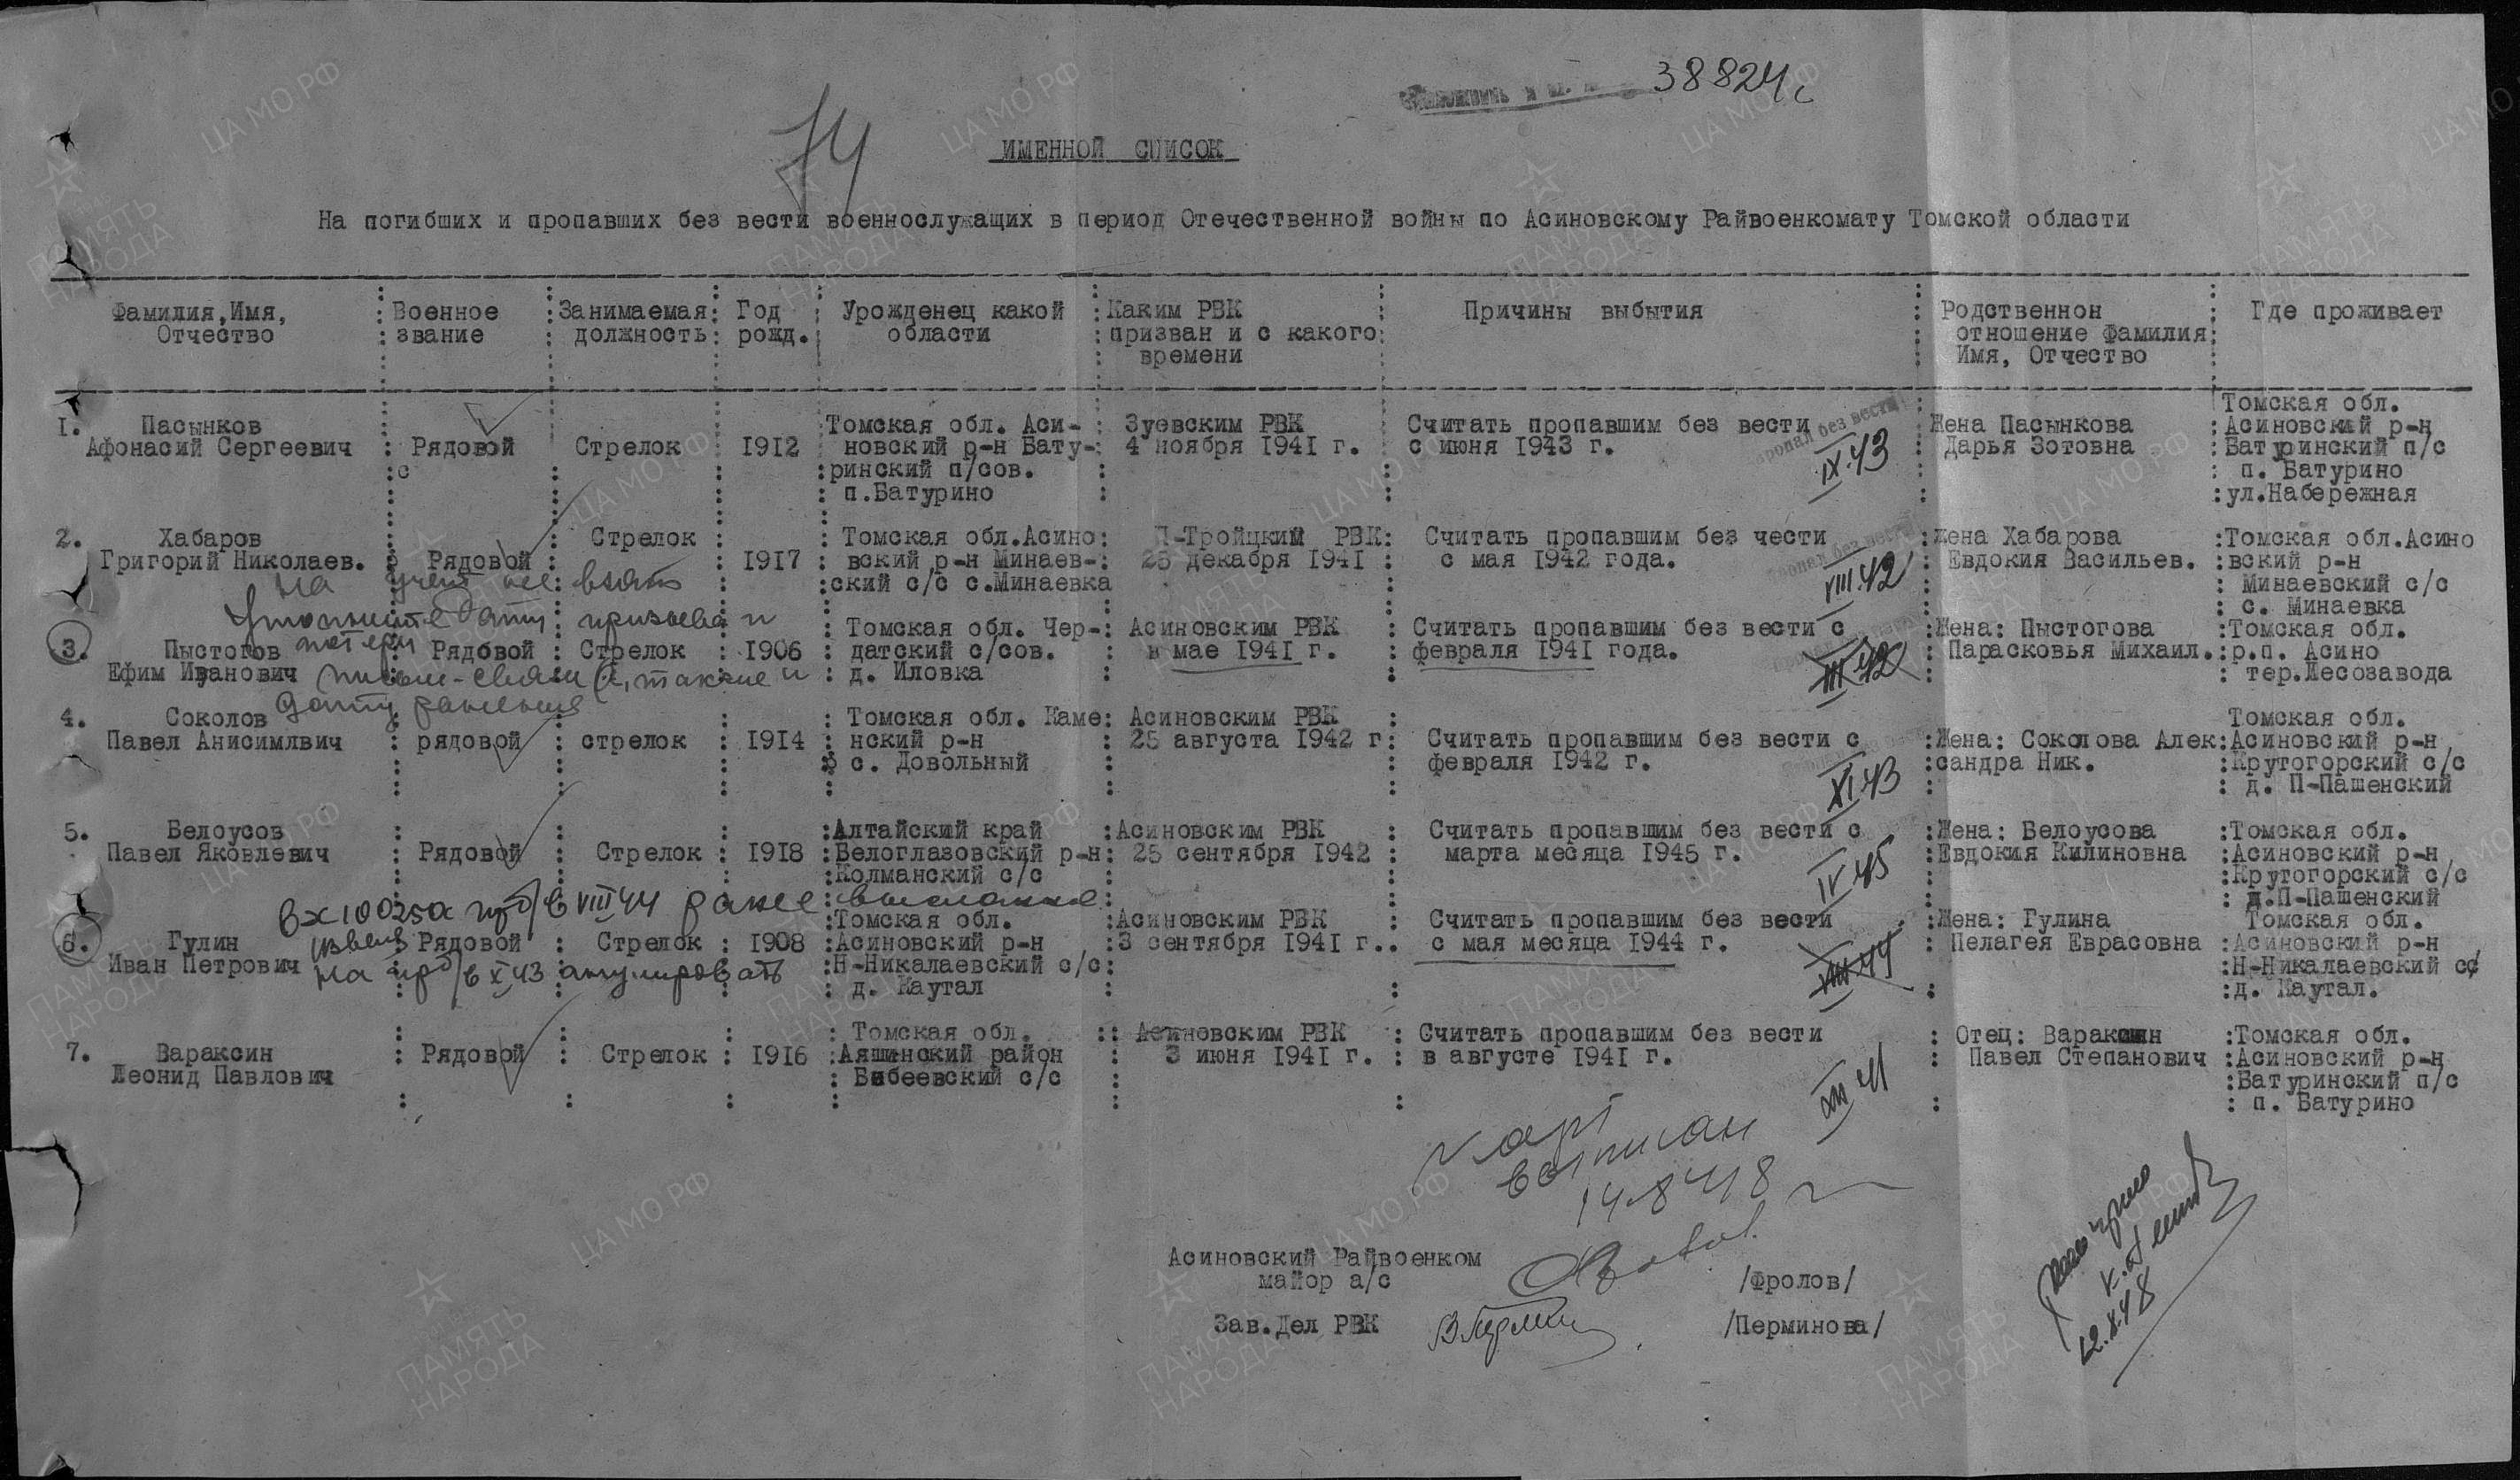 38824с
74
ИМЕННОЙ СПИСОК
На погибших и пропавших без вести военнослужащих в период Отечественной войны по Асиновскому Райвоенкомату Томской области
Фамилия,Имя, Отчество : Военное звание : Занимаемая должность : Год рожд. : Урожденец какой области : Каким РВК призван и с какого времени : Причины выбытия : Родственнон отношение Фамилия Имя, Отчество : Где проживает
1. Пасынков Афонасий Сергеевич : Рядовой : Стрелок : 1912 : Томская обл. Аси-новский р-н Бату-ринский п/сов. п.Батурино : Зуевским РВК 4 ноября 1941 г. : Считать пропавшим без вести с июня 1943 г. : Жена Пасынкова Дарья Зотовна : Томская обл. Асиновский р-н Батуринский п/с п. Батурино ул.Набережная
пропал без вести
IX.43
2. Хабаров Григорий Николаев. : Рядовой : Стрелок : 1917 : Томская обл.Асино вский р-н Минаев-ский с/с с.Минаевка : П-Тройцким РВК 25 декабря 1941 : Считать пропавшим без чести с мая 1942 года. : Жена Хабарова Евдокия Васильев. : Томская обл.Асино вский р-н Минаевский с/с с. Минаевка
пропал без вести
VIII.42
На учет не взят
Уточните дату призыва и
потери
3. Пыстогов Ефим Иванович : Рядовой : Стрелок : 1906 : Томская обл. Чер-датский с/сов. д. Иловка : Асиновским РВК в мае 1941 г. : Считать пропавшим без вести с февраля 1941 года. : Жена: Пыстогова Парасковья Михаил. : Томская обл. р.п. Асино тер.Лесозавода
III.42
4. Соколов Павел Анисимлвич : рядовой : стрелок : 1914 : Томская обл. Каме нский р-н с. Довольный : Асиновским РВК 25 августа 1942 г : Считать пропавшим без вести с февраля 1942 г. : Жена: Соколова Алек сандра Ник. : Томская обл. Асиновский р-н Крутогорский с/с д. П-Пашенский
XI.43
5. Белоусов Павел Яковлевич : Рядовой : Стрелок : 1918 : Алтайский край Белоглазовский р-н Колманский с/с : Асиновским РВК 25 сентября 1942 : Считать пропавшим без вести с марта месяца 1945 г. : Жена: Белоусова Евдокия Килиновна : Томская обл. Асиновский р-н Крутогорский с/с д.П-Пашенский
IV.45
6. Гулин Иван Петрович : Рядовой : Стрелок : 1908 : Томская обл. Асиновский р-н Н-Никалаевский с/с д. Каутал : Асиновским РВК 3 сентября 1941 г.. : Считать пропавшим без вести с мая месяца 1944 г. : Жена: Гулина Пелагея Еврасовна : Томская обл. Асиновский р-н Н-Никалаевский сс д. Каутал.
VIII.44
на пр б/в X 43 анулировать
7. Вараксин Леонид Павлович : Рядовой : Стрелок : 1916 : Томская обл. Аяшинский район Бибеевский с/с : Асиновским РВК 3 июня 1941 г. : Считать пропавшим без вести в августе 1941 г. : Отец: Вараксин Павел Степанович : Томская обл. Асиновский р-н Батуринский п/с п. Батурино
XII 41
карт
выписан
14 8 48
Асиновский Райвоенком
майор а/с /Фролов/
Зав.Дел РВК /Перминова/
12.X.48
ЦА МО РФ
ПАМЯТЬ НАРОДА